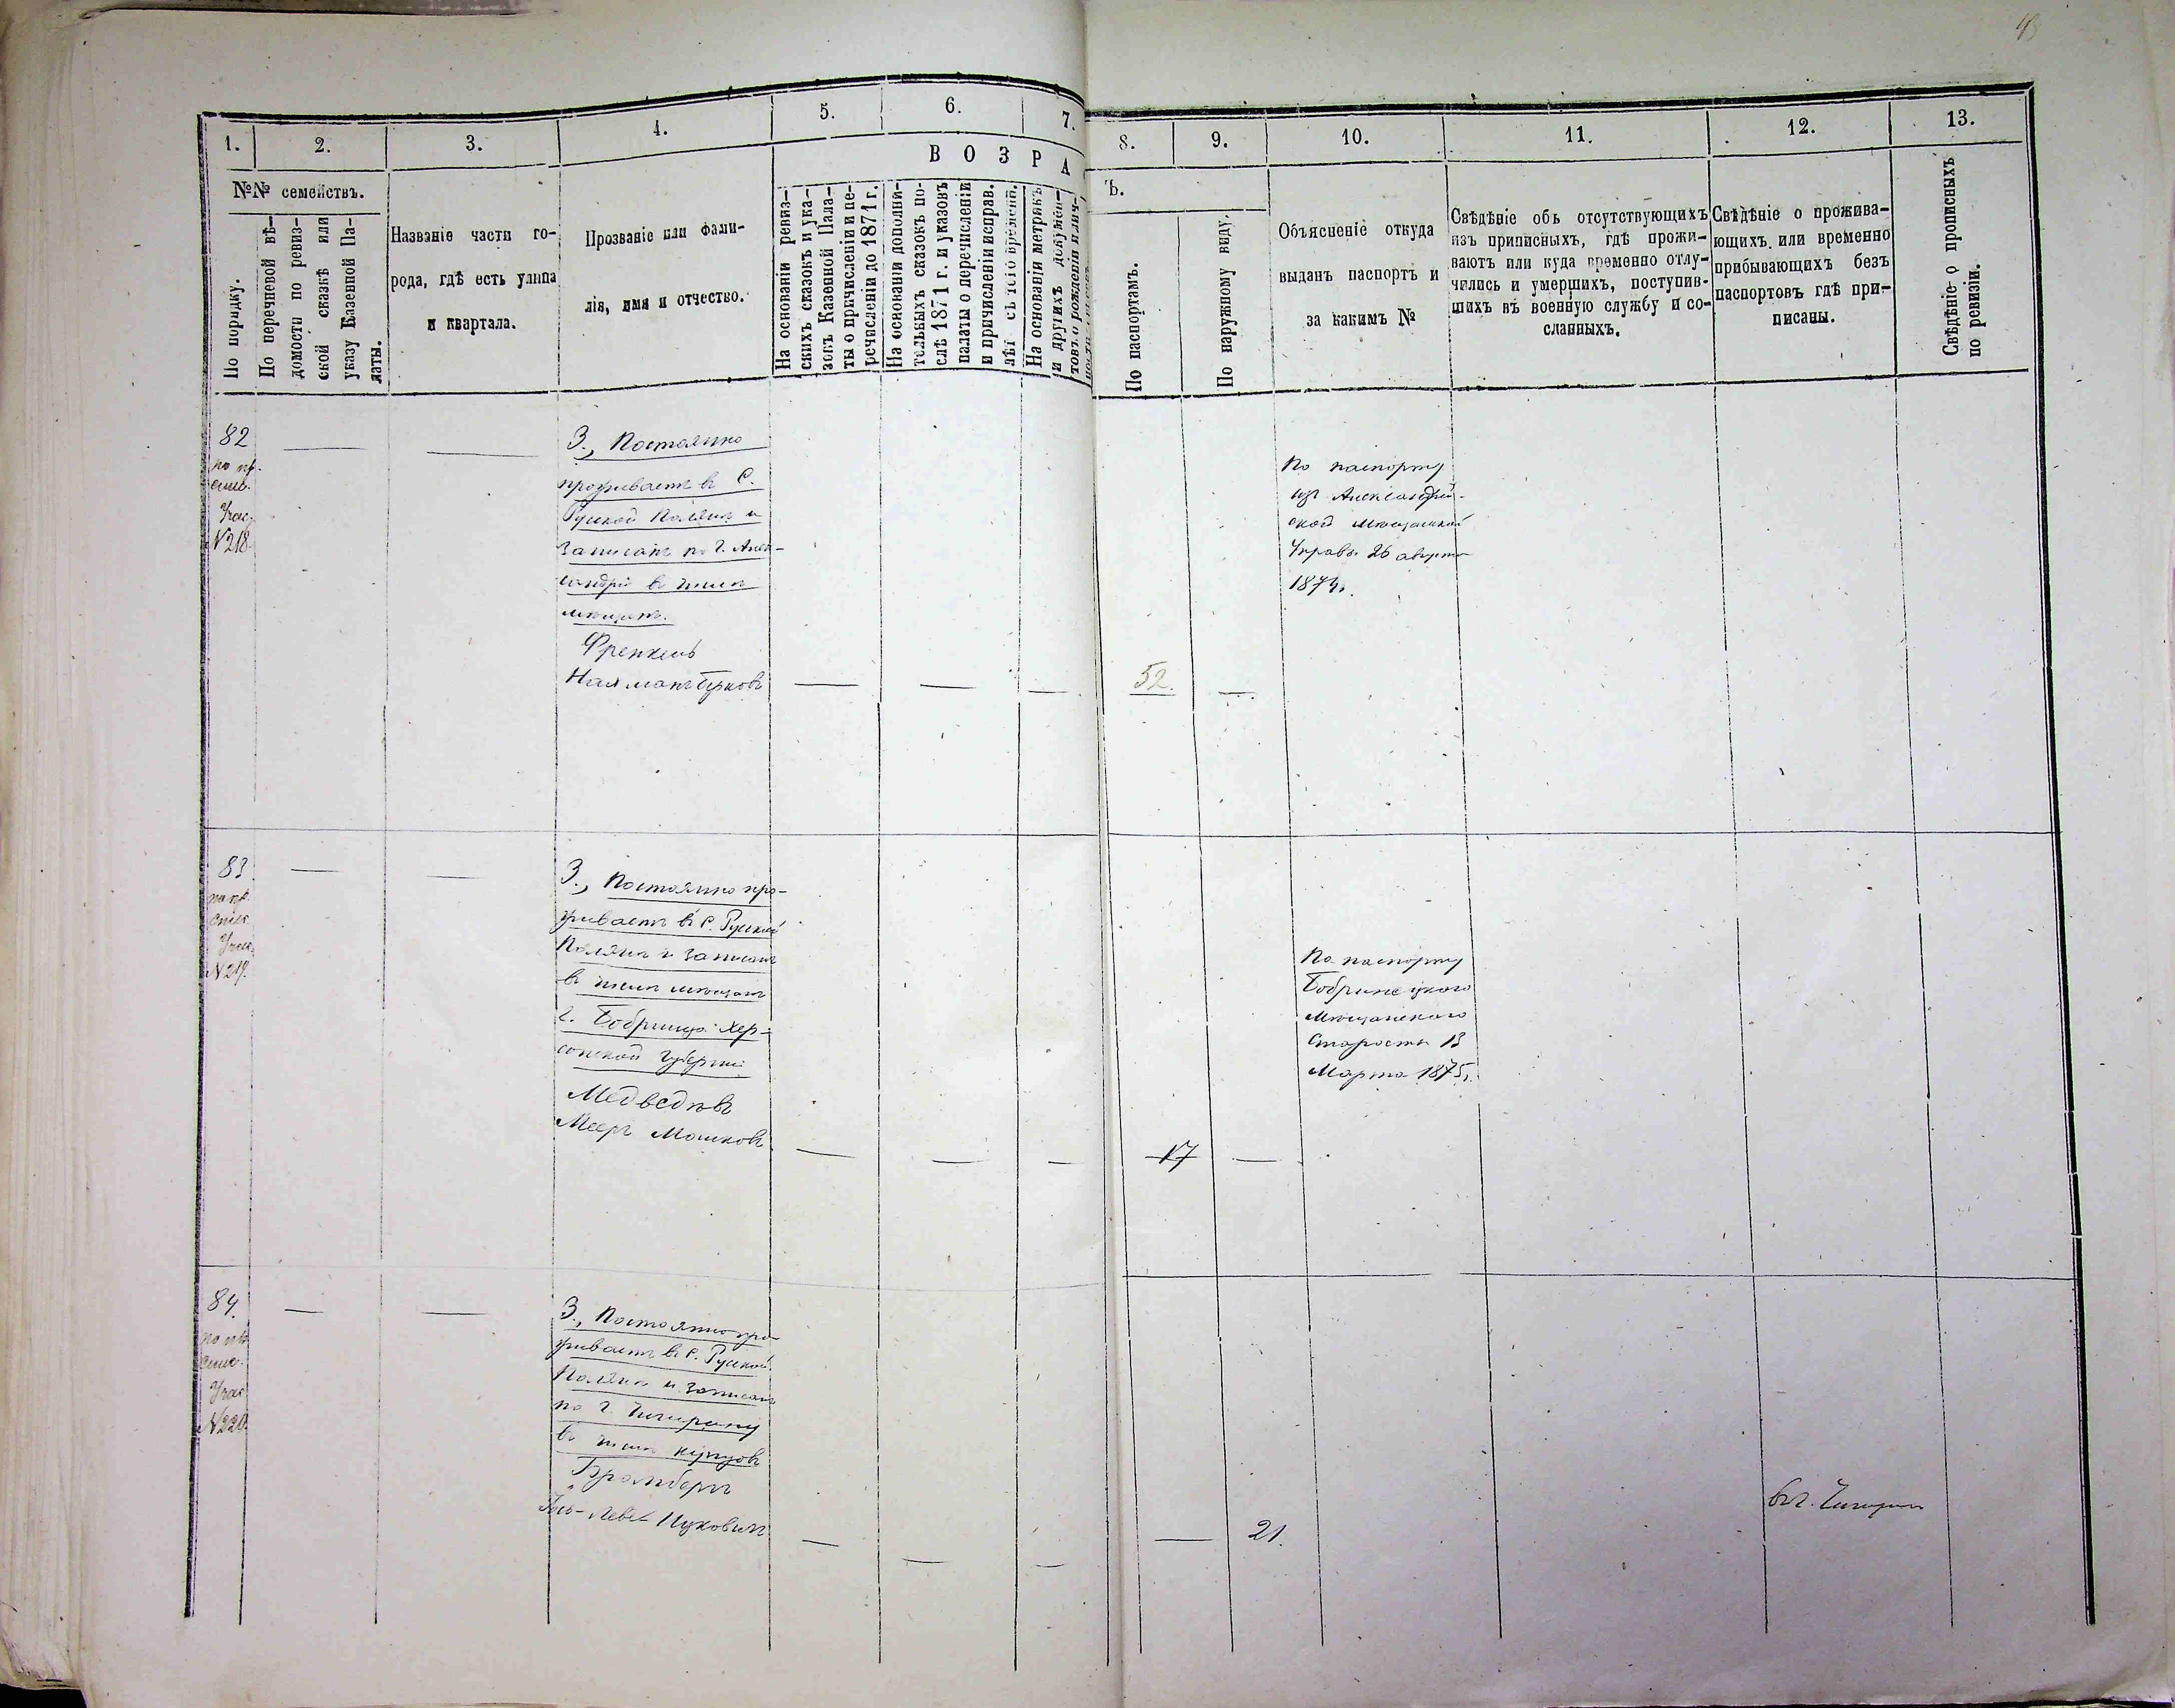 1.
2.
3.
4.
5.
6.
7.
8.
9.
10.
11.
12.
13.
№№ семействъ.
По порядку.
По перечневой вѣ-
домости по ревиз-
ской сказкѣ или
указу Казенной Па-
латы.
Названіе части го-
рода, гдѣ есть улица
и квартала.
Прозваніе или фами-
лія, имя и отчество.
ВОЗРА
Ъ.
На основаніи ревиз-
скихъ сказокъ и ука-
зовъ Казенной Пала-
ты о причисленіи и пе-
речисленіи до 1871 г.
На основаніи дополни-
тельныхъ сказокъ по-
слѣ 1871 г. и указовъ
палаты о перечисленіи
и причисленіи исправ.
лѣт съ того времени.
На основаніи метрикъ
и другихъ докумен-
товъ о рожденіи и лич-
По паспортамъ.
По наружному виду.
Объясненіе откуда
выданъ паспортъ и
за какимъ №
Свѣдѣніе объ отсутствующихъ
изъ приписныхъ, гдѣ прожи-
ваютъ или куда временно отлу-
чились и умершихъ, поступив-
шихъ въ военную службу и со-
сланныхъ.
Свѣдѣніе о прожива-
ющихъ или временно
прибывающихъ безъ
паспортовъ гдѣ при-
писаны.
Свѣдѣніе о прописныхъ
по ревизіи.
82
по пр.
спис.
Учас.
№218.
3., Постоянно
проживаетъ въ С.
Руской Полянѣ и
записанъ по г. Алек-
сандріи въ числѣ
мѣщанъ.
Френкель
Нахманъ Берковъ
52.
По паспорту
изъ Александрій-
ской Мѣщанской
Управы 26 августа
1874 г.
83
по пр.
спис.
Учас.
№219.
3., Постоянно про-
живаетъ въ С. Руской
Полянѣ и записанъ
въ числѣ мѣщанъ
г. Бобринца Хер-
сонской губерніи
Медведѣвъ
Мееръ Мошковъ
17
По паспорту
Бобринецкого
Мѣщанского
Старосты 13
Марта 1875 г.
84.
по пр.
спис.
Учас.
№220.
3., Постоянно про-
живаетъ въ С. Руской
Полянѣ и записанъ
по г. Чигирину
въ числѣ купцовъ
Бромбергъ
Іось-Лейб Ицковичъ
21.
въ г. Чигиринѣ